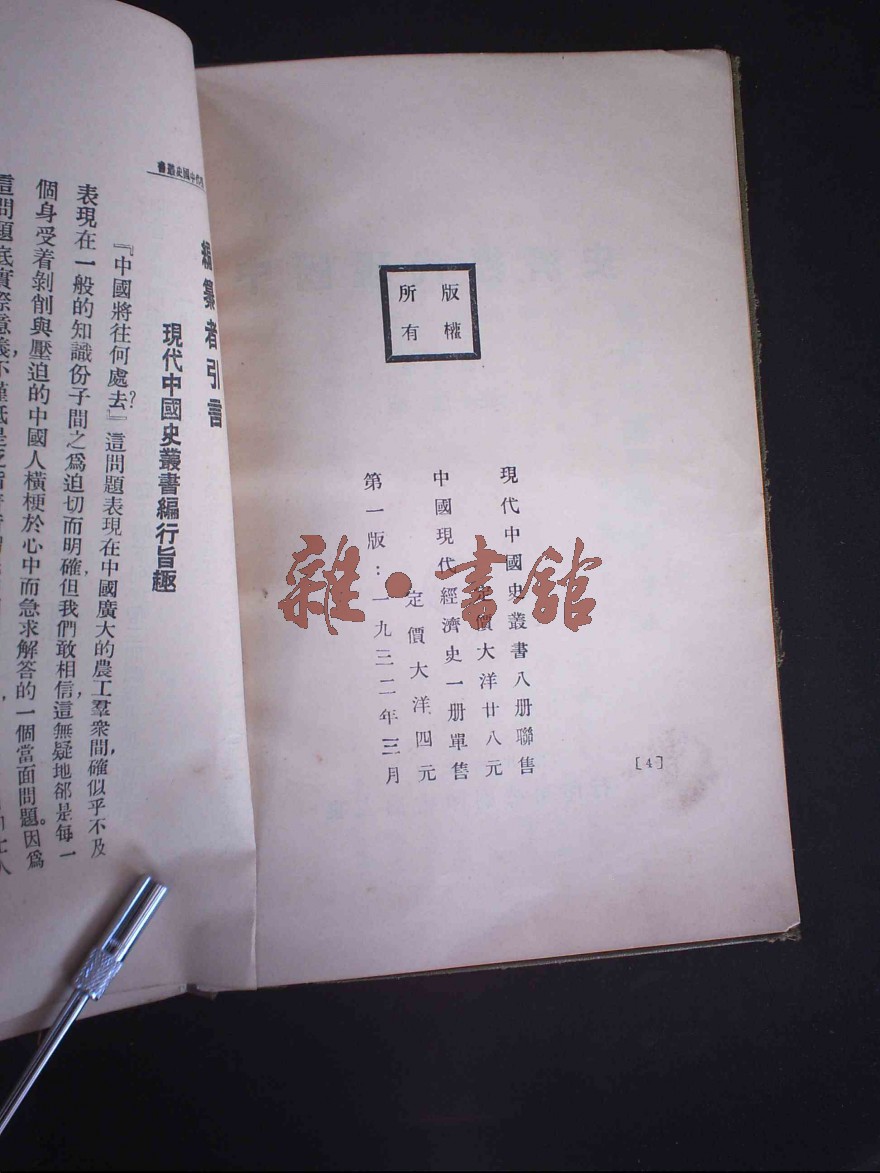 版權
所有
現代中國史叢書八册聯售
定價大洋廿八元
中國現代經濟史一册單售
定價大洋四元
第一版：一九三二年三月
[4]
雜·書館
中國史叢書
編纂者引言
現代中國史叢書編行旨趣
『中國將往何處去？』這問題表現在中國廣大的農工羣衆間，確似乎不及
表現在一般的知識份子間之爲迫切而明確，但我們敢相信，這無疑地卻是每一
個身受着剝削與壓迫的中國人橫梗於心中而急求解答的一個當面問題。因爲
這問題底實際意義，不僅祇是